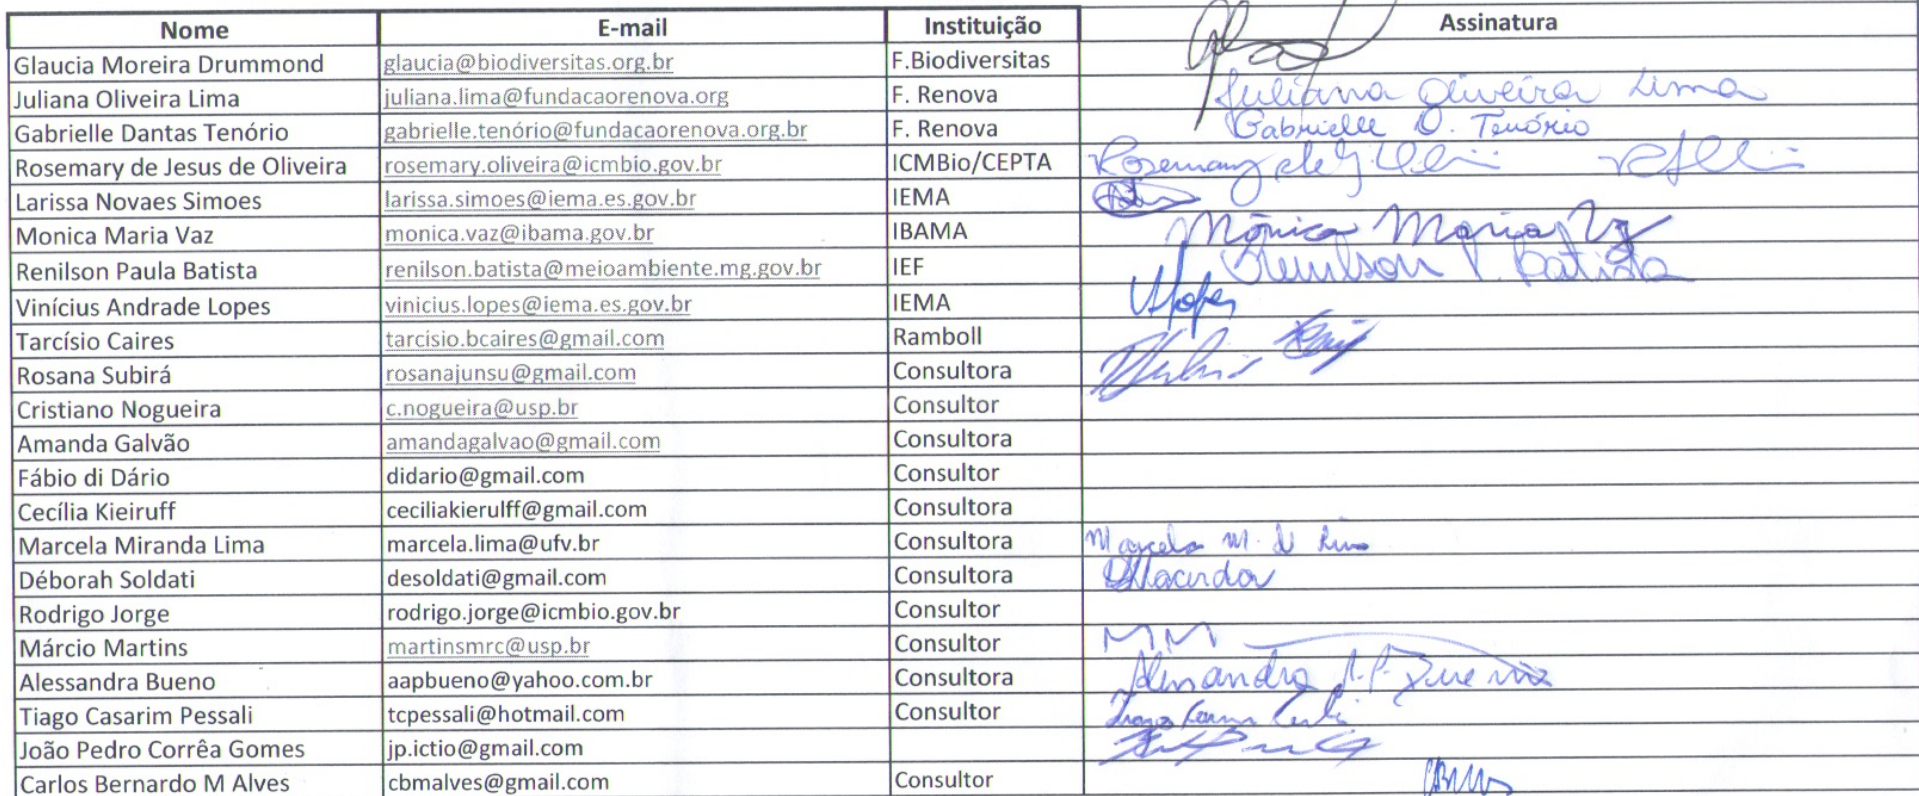 Nome E-mail Instituição Assinatura
Glaucia Moreira Drummond glaucia@biodiversitas.org.br F.Biodiversitas
Juliana Oliveira Lima juliana.lima@fundacaorenova.org F. Renova Juliana Oliveira Lima
Gabrielle Dantas Tenório gabrielle.tenório@fundacaorenova.org.br F. Renova Gabrielle D. Tenório
Rosemary de Jesus de Oliveira rosemary.oliveira@icmbio.gov.br ICMBio/CEPTA Rosemary de J.
Larissa Novaes Simoes larissa.simoes@iema.es.gov.br IEMA
Monica Maria Vaz monica.vaz@ibama.gov.br IBAMA Mônica Maria Vaz
Renilson Paula Batista renilson.batista@meioambiente.mg.gov.br IEF Renilson P. Batista
Vinícius Andrade Lopes vinicius.lopes@iema.es.gov.br IEMA VLopes
Tarcísio Caires tarcisio.bcaires@gmail.com Ramboll
Rosana Subirá rosanajunsu@gmail.com Consultora
Cristiano Nogueira c.nogueira@usp.br Consultor
Amanda Galvão amandagalvao@gmail.com Consultora
Fábio di Dário didario@gmail.com Consultor
Cecília Kieiruff ceciliakierulff@gmail.com Consultora
Marcela Miranda Lima marcela.lima@ufv.br Consultora Marcela M. de Lima
Déborah Soldati desoldati@gmail.com Consultora
Rodrigo Jorge rodrigo.jorge@icmbio.gov.br Consultor
Márcio Martins martinsmrc@usp.br Consultor MM
Alessandra Bueno aapbueno@yahoo.com.br Consultora Alessandra A. P. Bueno
Tiago Casarim Pessali tcpessali@hotmail.com Consultor
João Pedro Corrêa Gomes jp.ictio@gmail.com
Carlos Bernardo M Alves cbmalves@gmail.com Consultor